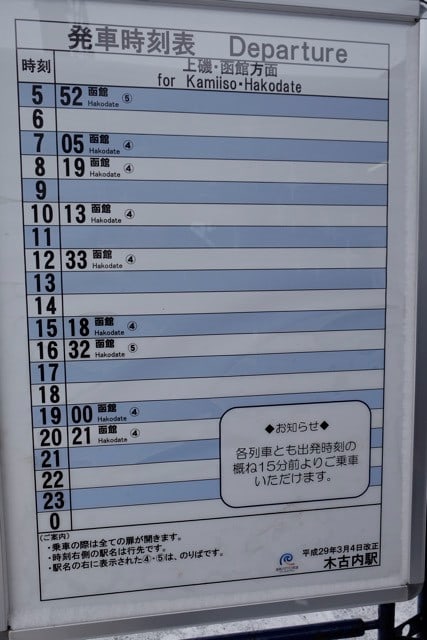 発車時刻表 Departure
時刻 上磯・函館方面
for Kamiiso・Hakodate
5 52 函館 Hakodate ⑤
6
7 05 函館 Hakodate ④
8 19 函館 Hakodate ④
9
10 13 函館 Hakodate ④
11
12 33 函館 Hakodate ④
13
14
15 18 函館 Hakodate ④
16 32 函館 Hakodate ⑤
17
18
19 00 函館 Hakodate ④
20 21 函館 Hakodate ④
21
22
23
0
◆お知らせ◆
各列車とも出発時刻の
概ね15分前よりご乗車
いただけます。
(ご案内)
・乗車の際は全ての扉が開きます。
・時刻右側の駅名は行先です。
・駅名の右に表示された④・⑤は、のりばです。
平成29年3月4日改正
木古内駅